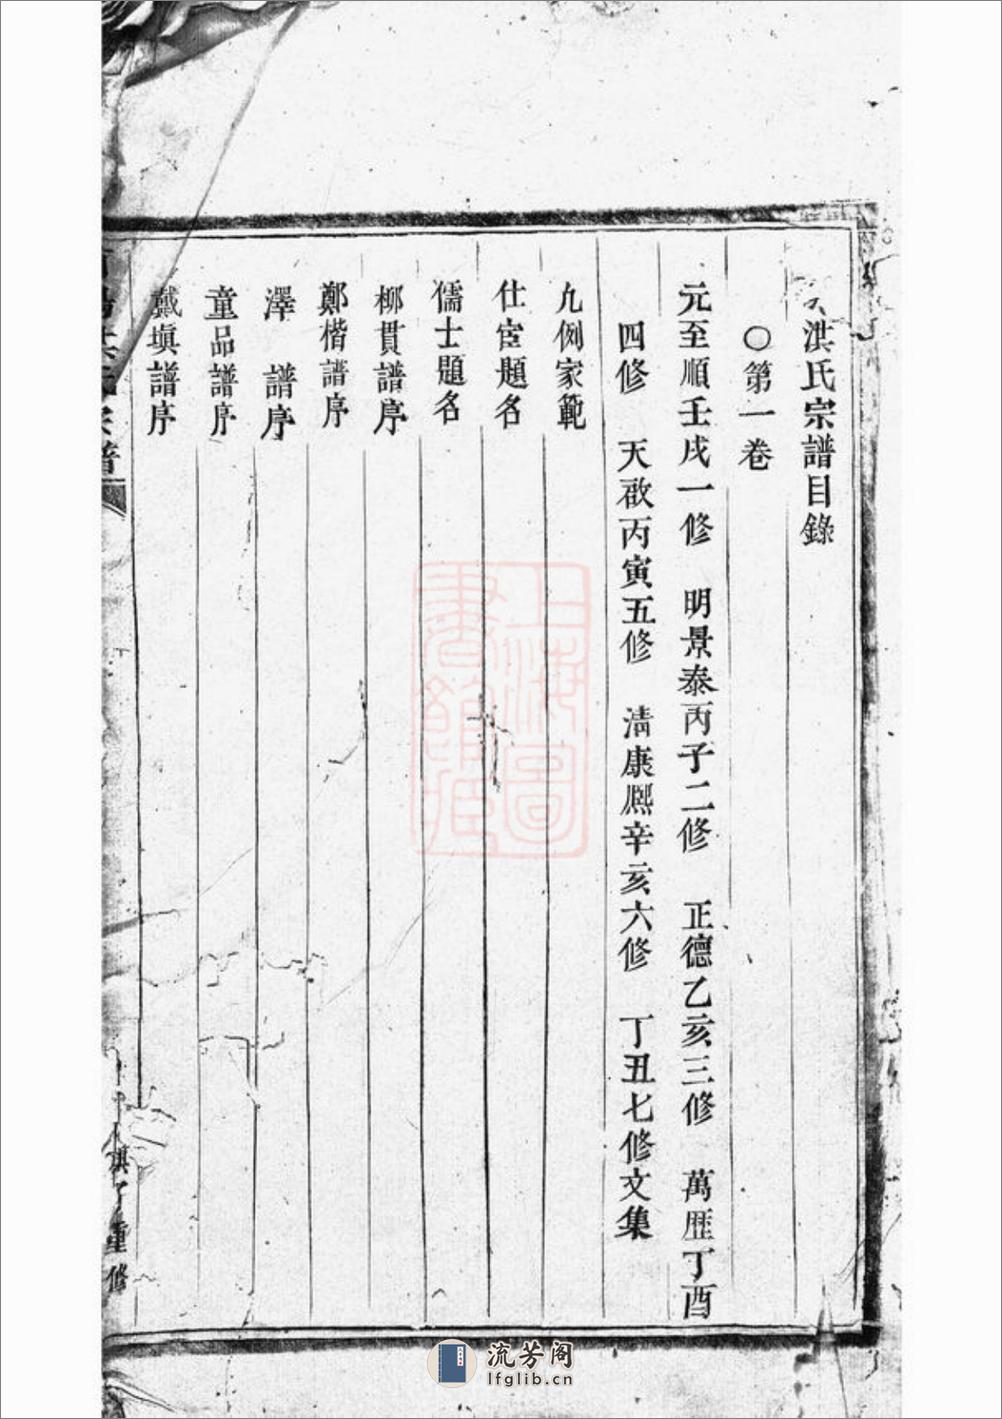 洪氏宗譜目錄
○第一卷
元至順壬戌一修　明景泰丙子二修　正德乙亥三修　萬歷丁酉
四修　天啟丙寅五修　清康熈辛亥六修　丁丑七修文集
凡例家範
仕宦題名
儒士題名
柳貫譜序
鄭楷譜序
澤　譜序
童品譜序
戴塡譜序
重修
上海圖
書館藏
流芳阁
lfglib.cn